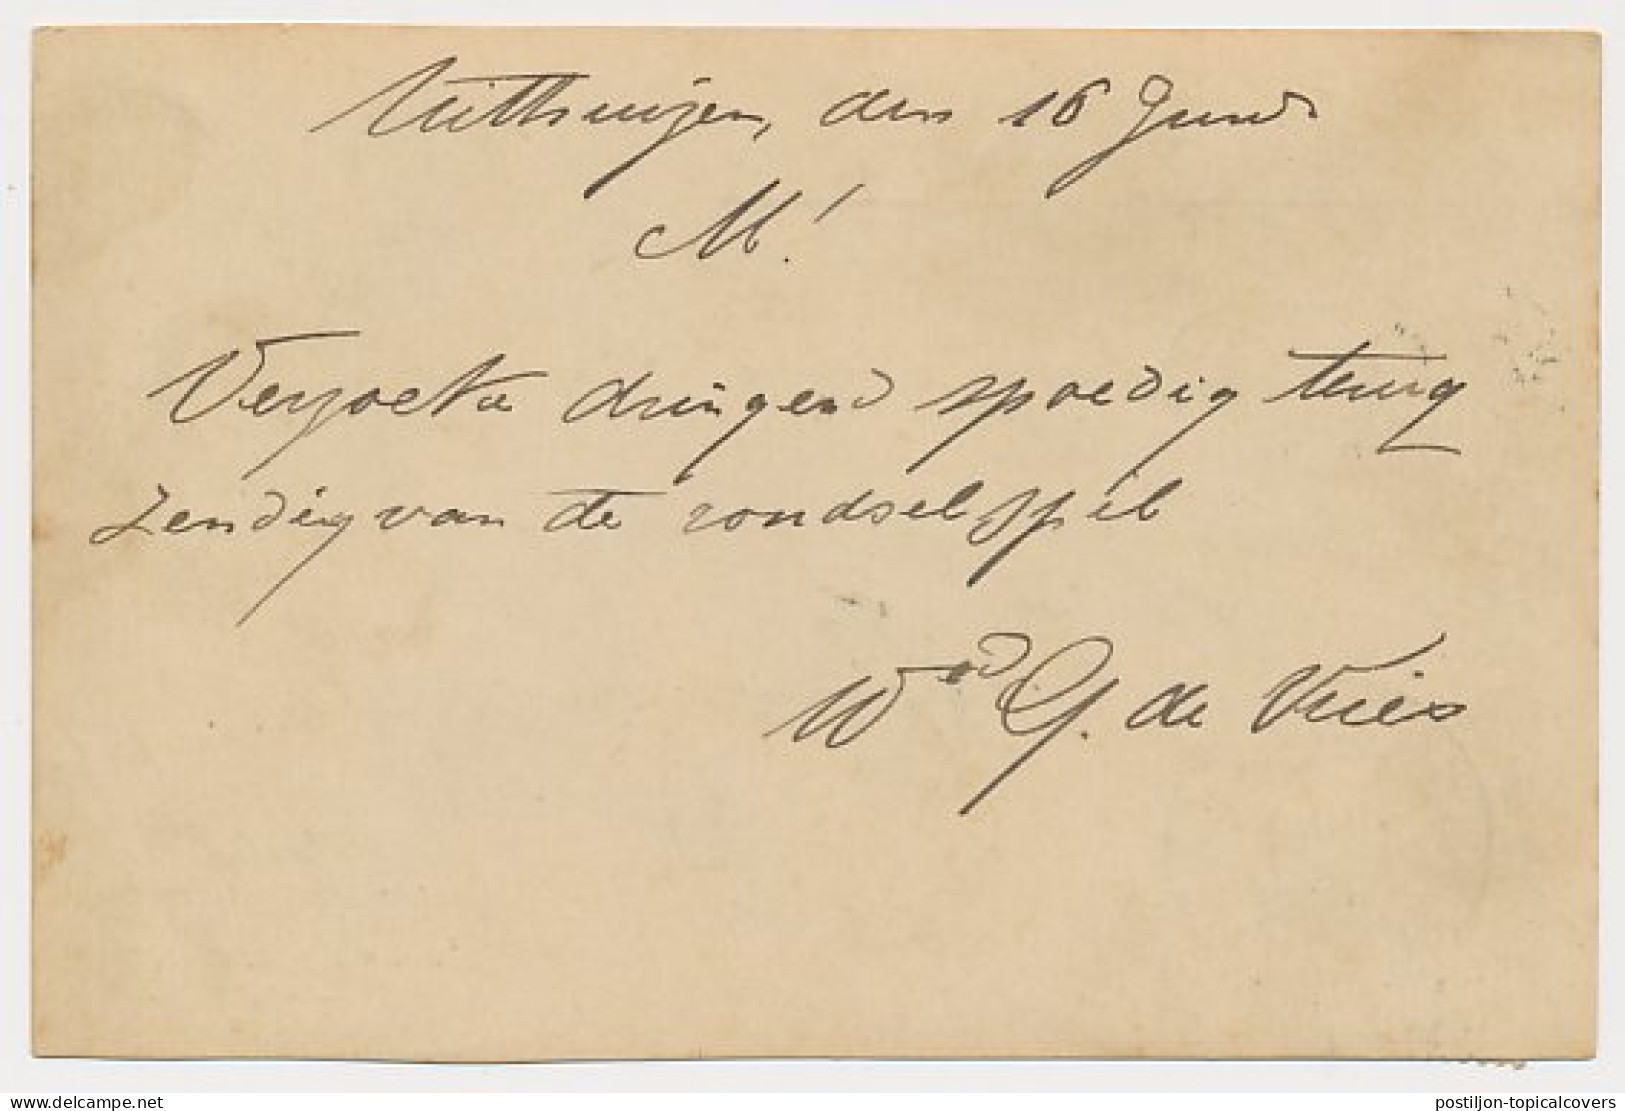 Uithuizen, den 16 Juni
M!
Verzoeke dringend spoedig terug
zending van de rondselspil
Wed G. de Vries
postiljon-topicalcovers